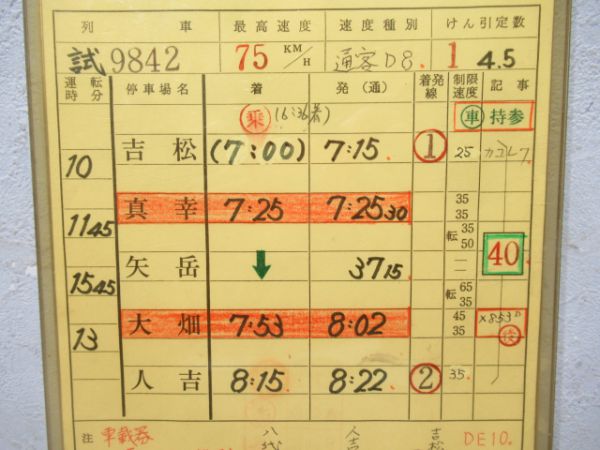 列車 最高速度 速度種別 けん引定数
試9842 75 KM/H 通客D8. 1 4.5
運転時分 停車場名 着 発(通) 着発線 制限速度 記事
乗 (6:36着) 車 持参
吉松 (7:00) 7:15. 1 25 カコレフ
10
真幸 7:25 7:25 30 35 35
1145 転 35 50
矢岳 ↓ 37 15. — — 40
1545 転 65 35
大畑 7:53 8:02 45 35 ×853D
13
人吉 8:15. 8:22. 2 35.
注 車載券 八代 人吉 吉松 DE10.